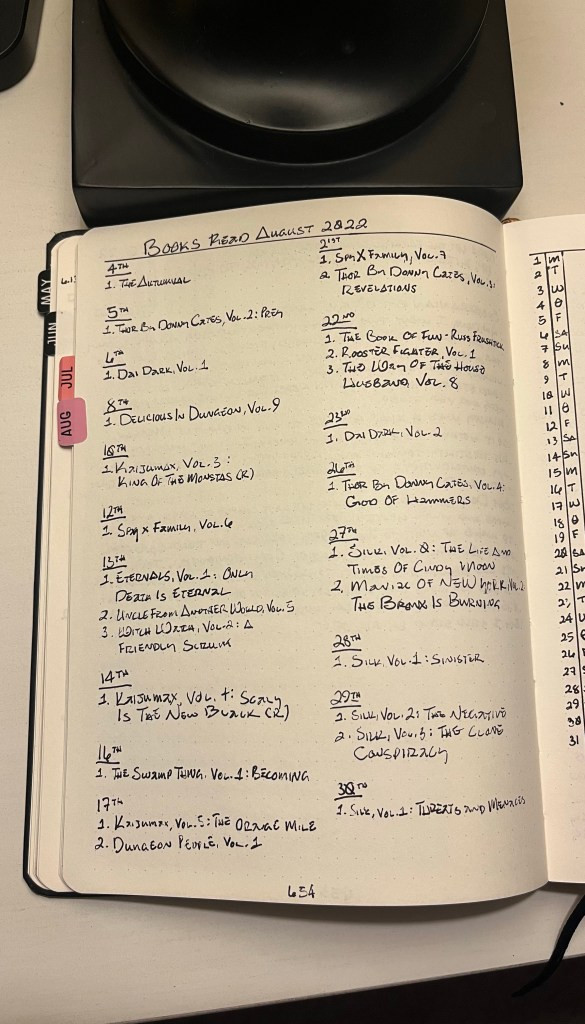 BOOKS READ AUGUST 2022
4TH
1. THE AUTUMNAL
5TH
1. THOR BY DONNY CATES, VOL. 2: PREY
6TH
1. DAI DARK, VOL. 1
8TH
1. DELICIOUS IN DUNGEON, VOL. 9
10TH
1. KAIJUMAX, VOL. 3:
KING OF THE MONSTAS (R)
12TH
1. SPY X FAMILY, VOL. 6
13TH
1. ETERNALS, VOL. 1: ONLY
DEATH IS ETERNAL
2. UNCLE FROM ANOTHER WORLD, VOL. 5
3. WITCH WATCH, VOL. 2: A
FRIENDLY SCRUM
14TH
1. KAIJUMAX, VOL. 4: SCALY
IS THE NEW BLACK (R)
16TH
1. THE SWAMP THING, VOL. 1: BECOMING
17TH
1. KAIJUMAX, VOL. 5: THE ORANGE MILE
2. DUNGEON PEOPLE, VOL. 1
21ST
1. SPY X FAMILY, VOL. 7
2. THOR BY DONNY CATES, VOL. 3:
REVELATIONS
22ND
1. THE BOOK OF FUN - RUSS FRUSHTICK
2. ROOSTER FIGHTER, VOL. 1
3. THE WAY OF THE HOUSE
HUSBAND, VOL. 8
23RD
1. DAI DARK, VOL. 2
26TH
1. THOR BY DONNY CATES, VOL. 4:
GOD OF HAMMERS
27TH
1. SILK, VOL. 0: THE LIFE AND
TIMES OF CINDY MOON
2. MANIAC OF NEW YORK, VOL. 2
THE BRONX IS BURNING
28TH
1. SILK, VOL. 1: SINISTER
29TH
1. SILK, VOL. 2: THE NEGATIVE
2. SILK, VOL. 3: THE CLONE
CONSPIRACY
30TH
1. SILK, VOL. 1: THREATS AND MENACES
654
MAY
JUN
JUL
AUG
1 M
2 T
3 W
4 Θ
5 F
6 SA
7 SU
8 M
9 T
10 W
11 Θ
12 F
13 SA
14 SU
15 M
16 T
17 W
18 Θ
19 F
20 SA
21 SU
22 M
23 T
24
25
26
27
28
29
30
31